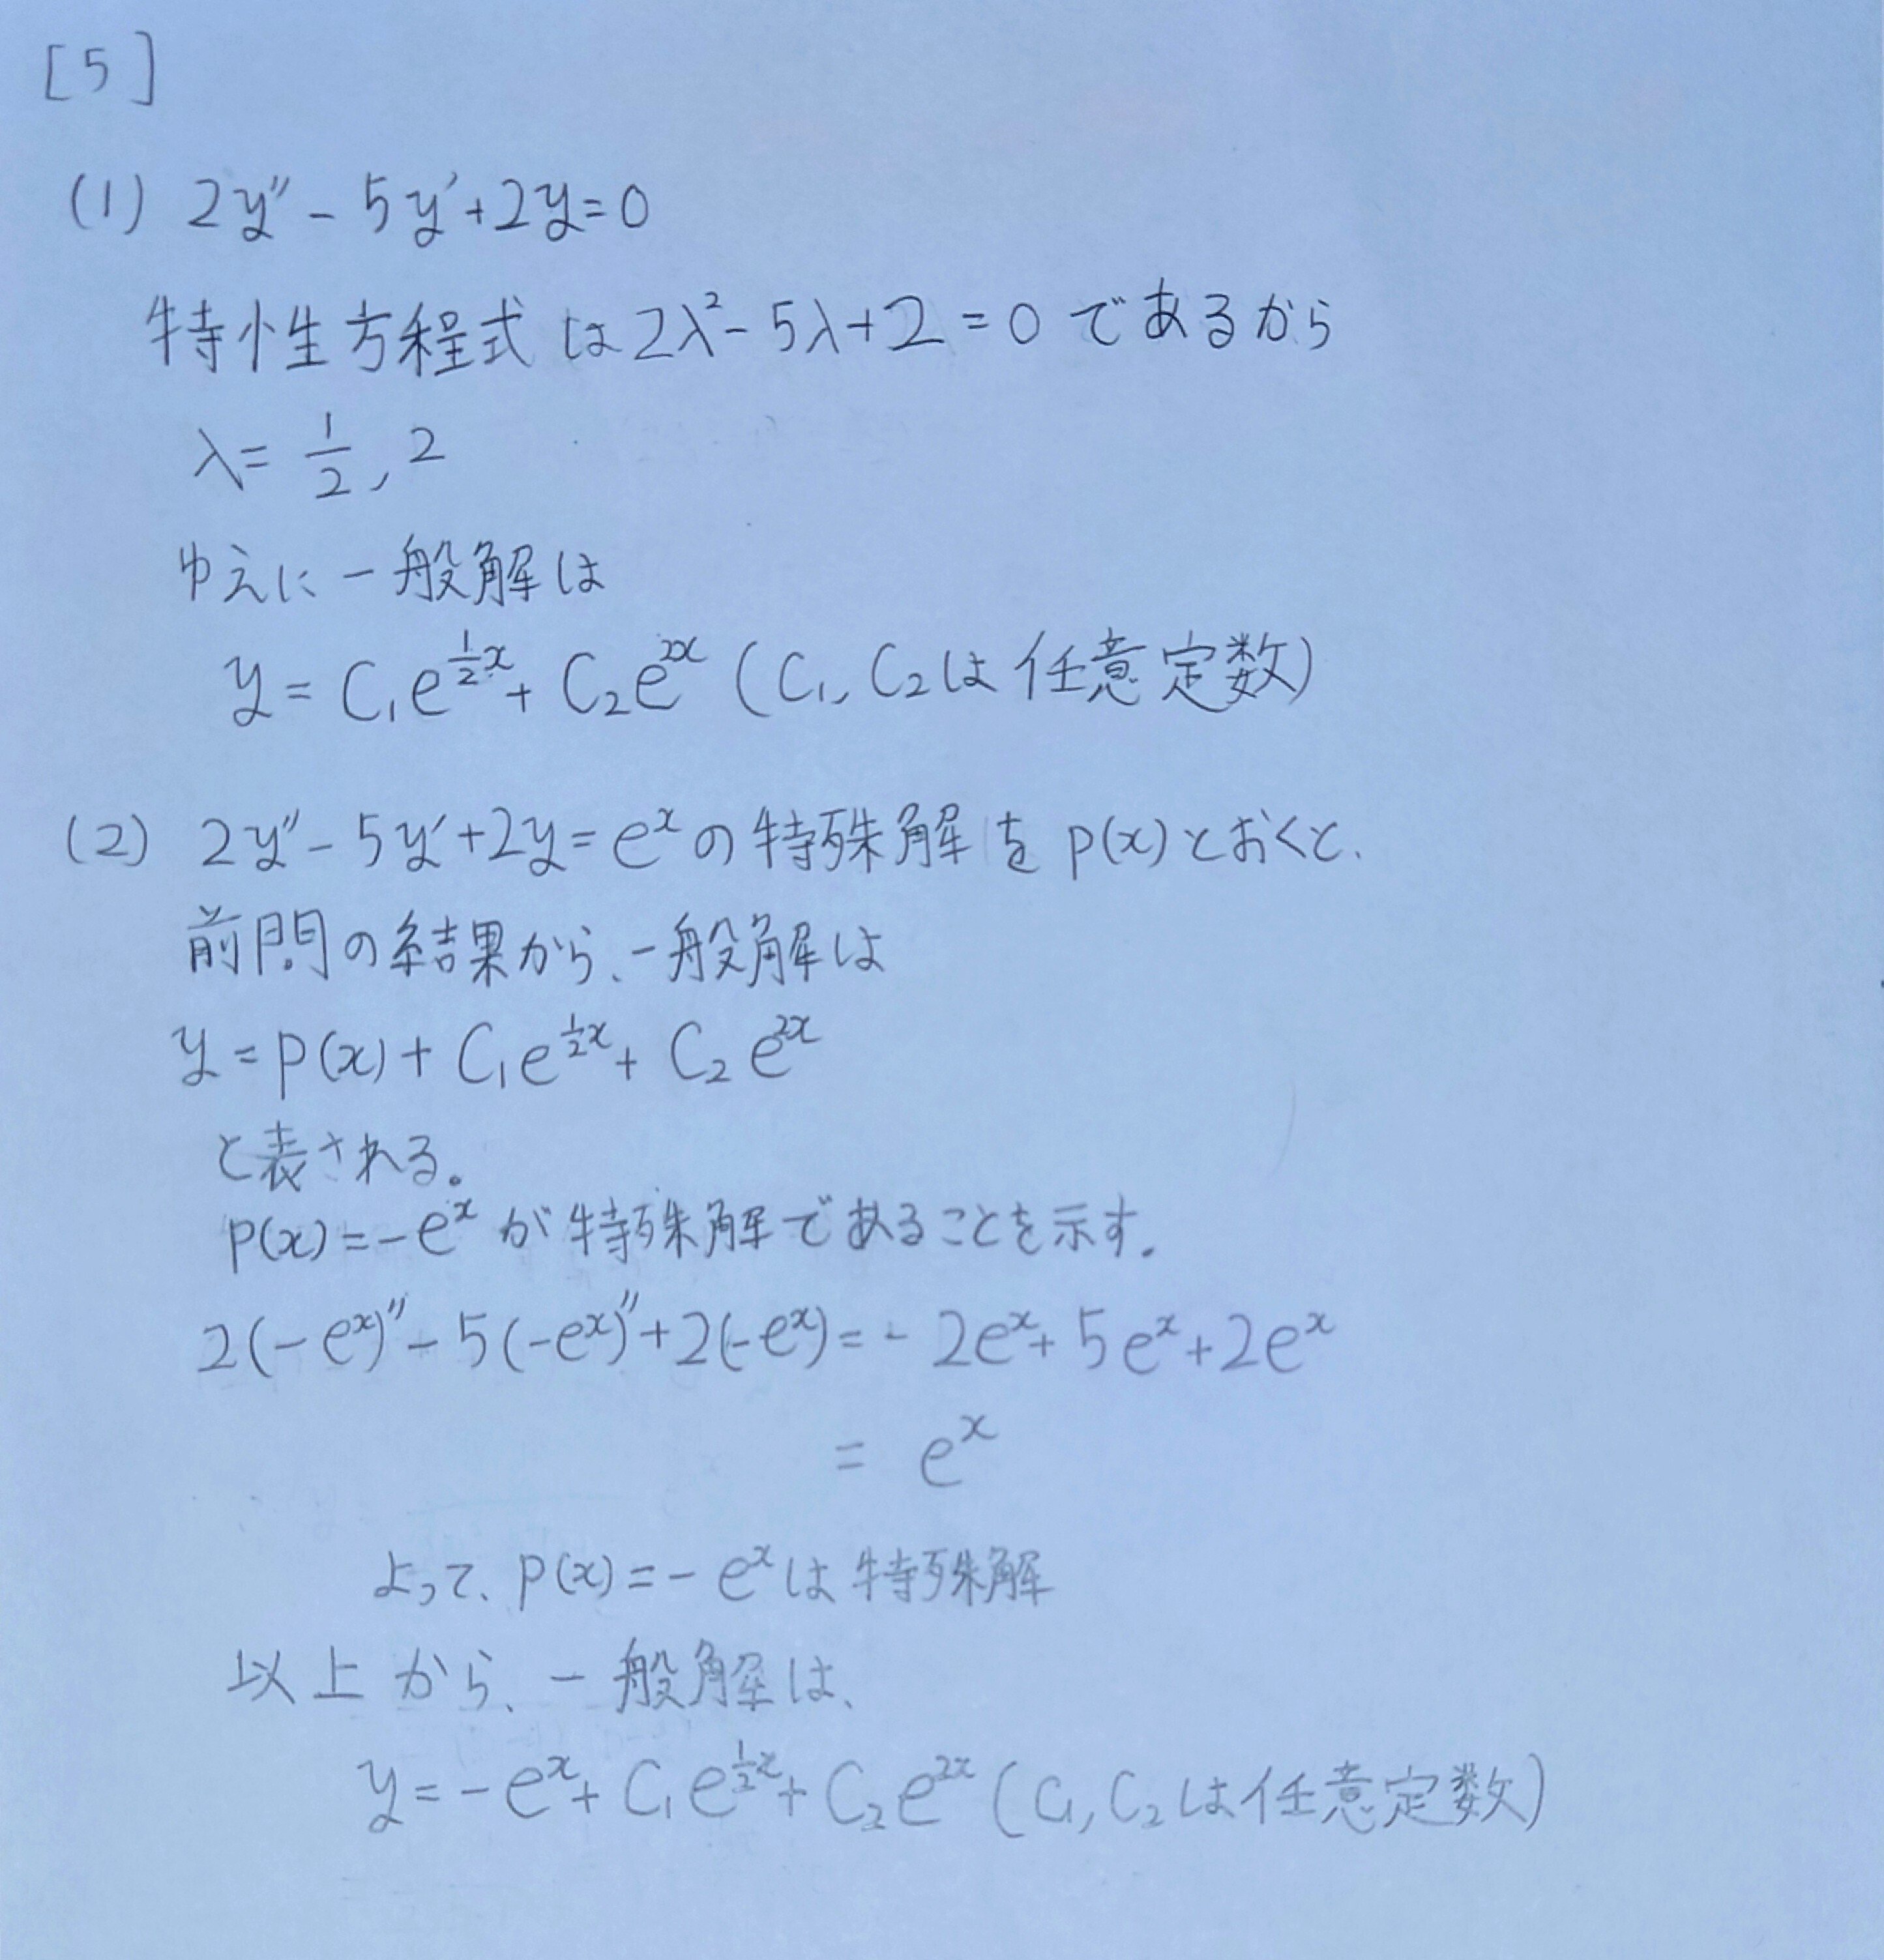 [5]
(1) 2y'' - 5y' + 2y = 0
特性方程式は 2λ² - 5λ + 2 = 0 であるから
λ = 1/2, 2
ゆえに一般解は
y = C₁e^{1/2 x} + C₂e^{2x} (C₁, C₂は任意定数)
(2) 2y'' - 5y' + 2y = e^x の特殊解を p(x) とおくと、
前問の結果から、一般解は
y = p(x) + C₁e^{1/2 x} + C₂e^{2x}
と表される。
p(x) = -e^x が特殊解であることを示す。
2(-e^x)'' - 5(-e^x)'' + 2(-e^x) = - 2e^x + 5e^x + 2e^x
= e^x
よって、p(x) = - e^x は特殊解
以上から、一般解は、
y = -e^x + C₁e^{1/2 x} + C₂e^{2x} (C₁, C₂は任意定数)